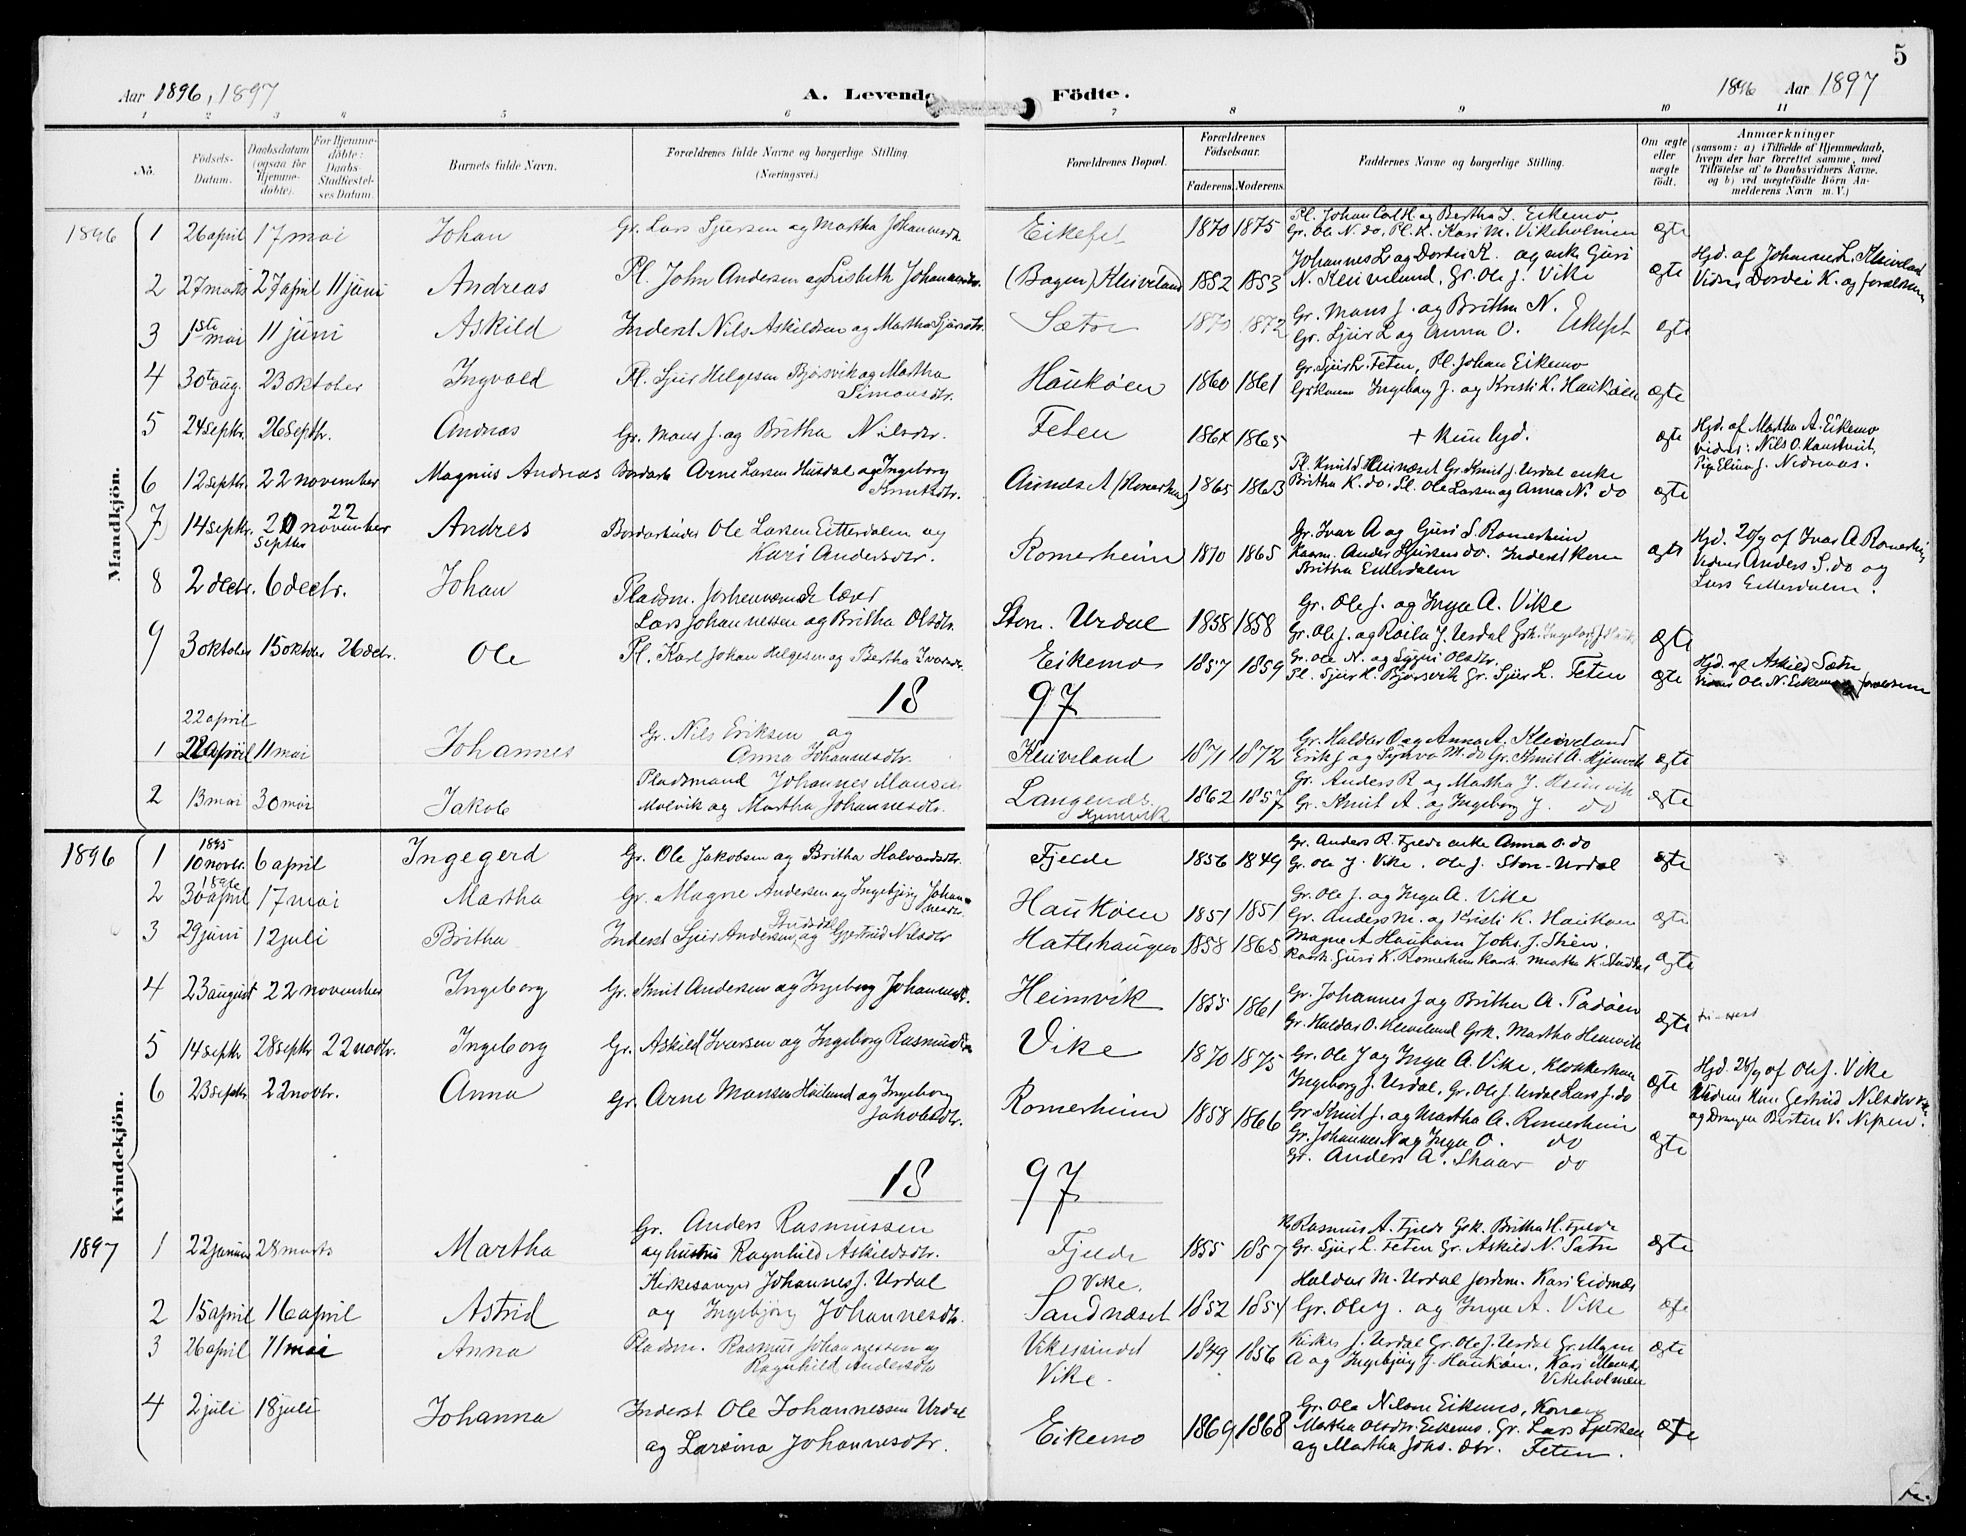 5
Aar 1896, 1897
A. Levende Födte.
1896 Aar 1897
1 2 3 4 5 6 7 8 9 10 11
No.
Födsels-Datum.
Daabsdatum (ogsaa for Hjemmedöbte).
For Hjemmedöbte: Daabs-Stadfæstelses Datum.
Barnets fulde Navn.
Forældrenes fulde Navne og borgerlige Stilling. (Næringsvei.)
Forældrenes Bopæl.
Forældrenes Födselsaar.
Faderens. Moderens.
Faddernes Navne og borgerlige Stilling.
Om ægte eller uægte födt.
Anmærkninger (saasom: a) i Tilfælde af Hjemmedaab, hvem der har forrettet samme, med Tilföielse af to Daabsvidners Navne, og b) ved uægtefödte Börn Anmelderens Navn m. V.)
Mandkjön.
1896 1 26 april 17 mai Johan Gr. Lars Sjursen og Martha Johannesdtr. Eikefet 1870 1875 Pl. Johan Carl H. og Bertha I. Eikemo,
Gr. Ole N. do, Pl. K. Kari M. Vikeholmen ægte
2 27 marts 27 april 11 juni Andreas Pl. John Andersen og Lisbeth Johannesdtr. (Bogen) Kleiveland 1852 1853 Johannes L og Dordei K. og enke Guri
N. Kleiveland, Gr. Ole J. Vike ægte Hjd. af Johannes L. Kleiveland
Vidner Dordei K. og forældrene
3 1ste mai 11 juni Askild Inderst Nils Askildsen og Martha Sjursdtr. Sætre 1870 1872 Gr. Mons J. og Britha N.
Gr. Sjur L og Anna O. Eikefet ægte
4 30te aug. 23 oktober Ingvald Pl. Sjur Helgesen Bjørsvik og Martha
Simonsdtr. Haukøen 1860 1861 Gr. Sjur L. Feten, Pl. Johan Eikemo
Ingeborg J. og Kristi K. Haukøen ægte
5 24 septbr. 26 septbr. Andreas Gr. Mons J. og Britha Nilsdtr. Feten 1864 1865 + kun hjd. ægte Hjd. af Martha A. Eikemo
vidner: Nils O.
Pige Elina J. Nedreaas.
6 12 septbr. 22 november Magnus Andreas Arne Larsen Husdal og Ingeborg
Knutsdtr. 1865 1863 Pl. Knut S. Gr. Knut J. Urdal enke
Britha K. do. Pl. Ole Larsen og Anna N. do ægte
7 14 septbr. 20 septbr 22 november Andres Ole Larsen Eitterdalen og
Kari Andersdtr. Romerheim 1870 1865 Gr. Ivar A og Guri S. Romerheim
Anders Sjursen do. Inderst kone
Britha Eitterdalen ægte Hjd. 20/9 af Ivar A Romerheim
Vidner Anders S. do og
Lars Eitterdalen.
8 2 decbr. 6 decbr. Johan Pladsm. lærer
Lars Johannessen og Britha Olsdtr. Store Urdal 1858 1858 Gr. Ole J. og Inga A. Vike
Gr. Ole J. og Roela J. Urdal ægte
9 3 oktober 15 oktober 26 decbr. Ole Pl. Karl Johan Helgesen og Bertha Ivarsdtr. Eikemo 1857 1859 Gr. Ole N. og Sygni Olsdtr.
Pl. Sjur H. Bjørsvik Gr. Sjur L. Feten ægte Hjd. af Askild Sætre
Vidner Ole N. Eikemo og forældrene
18 97
1 22 april 22 april 11 mai Johannes Gr. Nils Eriksen og
Anna Johannesdtr. Kleiveland 1871 1872 Gr. Haldor O og Anna A. Kleiveland
Erik J og Synva M. do Gr. Knut A. Hjemvik ægte
2 13 mai 30 mai Jakob Pladsmand Johannes Monsen
Molvik og Martha Johannesdtr. Langenes Hjemvik 1862 1857 Gr. Anders R og Martha J. Heimvik
Gr. Knut A. og Ingeborg J. do ægte
Kvindekjön.
1896 1 1895 10 novbr. 6 april Ingegerd Gr. Ole Jakobsen og Britha Halvardsdtr. Fjelde 1856 1849 Gr. Anders R. Fjelde enke Anna O. do
Gr. Ole J. Vike. Ole J. Store-Urdal ægte
2 1896 30 april 17 mai Martha Gr. Magne Andersen og Ingebjørg Johannesdtr. Haukøen 1851 1851 Gr. Ole J. og Inga A. Vike
Gr. Anders M. og Kristi K. Haukøen ægte
3 29 juni 12 juli Britha Inderst Sjur Andersen og Gjertrud Nilsdtr Hatlehaugen 1858 1865 Magne A Haukøen Johs. J.
Guri K. Romerheim Martha K. ægte
4 23 august 22 november Ingeborg Gr. Knut Andersen og Ingeborg Johannesdtr. Heimvik 1855 1861 Gr. Johannes J og Britha A. Padøen
Gr. Haldor O. Kleiveland Grk. Martha Heimvik ægte
5 14 septbr 28 septbr 22 novbr. Ingeborg Gr. Askild Ivarsen og Ingeborg Rasmusdtr Vike 1870 1875 Gr. Ole J og Inga A. Vike, Klokkerkone
Ingeborg J. Urdal, Gr. Ole J. Urdal Lars J. do ægte Hjd. 28/9 af Ole J. Vike
Vidner Kone Gertrud Nilsdtr Vike
og Drengen Bersten V. Nipen.
6 23 septbr 22 novbr. Anna Gr. Arne Monsen Høiland og Ingeborg
Jakobsdtr. Romerheim 1858 1866 Gr. Knut J. og Martha A. Romerheim
Gr. Johannes N og Inga O. do
Gr. Anders A. Skaar do ægte
18 97
1897 1 22 januar 28 marts Martha Gr. Anders Rasmussen
og hustru Ragnhild Askildsdtr. Fjelde 1855 1857 Rasmus A. Fjelde Grk. Britha H. Fjelde
Gr. Sjur L. Feten Gr. Askild N. Sætre ægte
2 15 april 16 april Astrid Kirkesanger Johannes J. Urdal
og Ingebjørg Johannesdtr. Vike. Sandnæset 1852 1854 Haldor M. Urdal Jordm. Kari Eidnæs
Gr. Ole J. og Inga A. Vike ægte
3 26 april 11 mai Anna Pladsm. Rasmus Johannessen og
Ragnhild Andersdtr Vikesundet Vike. 1849 1856 Kirkes. J. Urdal Gr. Ole J. Urdal Gr. Magne
A og Ingebjørg J. Haukøen, Kari Monsdtr
Vikeholmen ægte
4 2 juli 18 juli Johanna Inderst Ole Johannessen Urdal
og Larsina Johannesdtr. Eikemo 1869 1868 Gr. Ole Nilsen Eikemo, Konen
Martha Olsdtr. Eikemo. Gr. Lars Sjursen
og Martha Johs. dtr. Feten. ægte